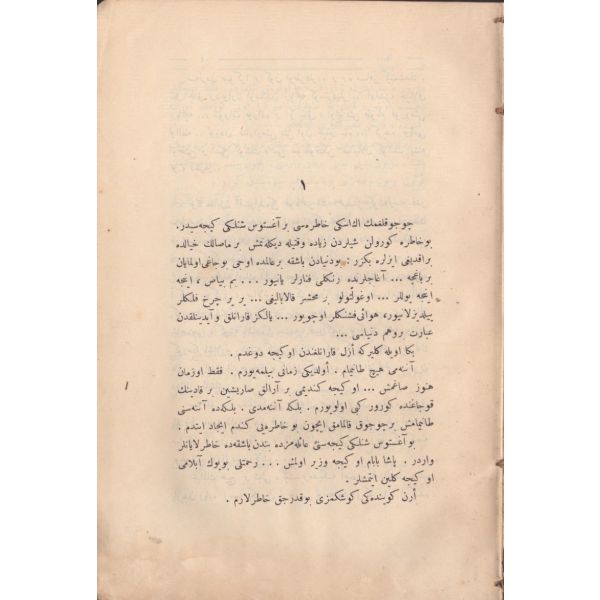 ١
چوجوقلغمك اك اسكی خاطره‌سی بر آغستوس شنلكی كیجه‌سیدر.
بو خاطره كورولن شیلردن زیاده وقتیله دیكله‌نمش بر ماصالك خیالده
براقدیغی ایزلره بكزر : بو دنیادن باشقه بر عالمده اوجی بوجاغی اولمایان
بر باغچه ... آغاجلرنده رنكلی فنارلر یانیور ... بم بیاض ، اینجه
اینجه یوللر ... اوغولتولو بر محشر قالابالیغی ... یر یر چرخ فلكلر
ییلدیزلانیور، هوائی فشنكلر اوچویور ... یالكز قارانلق و آیدینلقدن
عبارت بر وهم دنیاسی ...
بكا اویله كلیر كه أزل قارانلغندن او كیجه دوغدم .
آننه‌می هیچ طانیمام . أولدیكی زمانی بیلمه‌یورم . فقط اوزمان
هنوز صاغمش ... او كیجه كندیمی بر آرالق صاریشین بر قادینك
قوجاغنده كورور كبی اولویورم . بلكه آننه‌مدی . بلكه‌ده آننه‌سنی
طانیمامش بر چوجوق قالمامق ایچون بو خاطره‌یی كندم ایجاد ایتدم .
بو آغستوس شنلكی كیجه‌سنی عائله‌مزده بندن باشقه‌ده خاطرلایانلر
واردر . پاشا بابام او كیجه وزیر اولمش ... رحمتلی بویوك آبلامی
او كیجه كلین ایتمشلر .
أرن كوینده‌كی كوشكمزی بوقدرجق خاطرلارم .